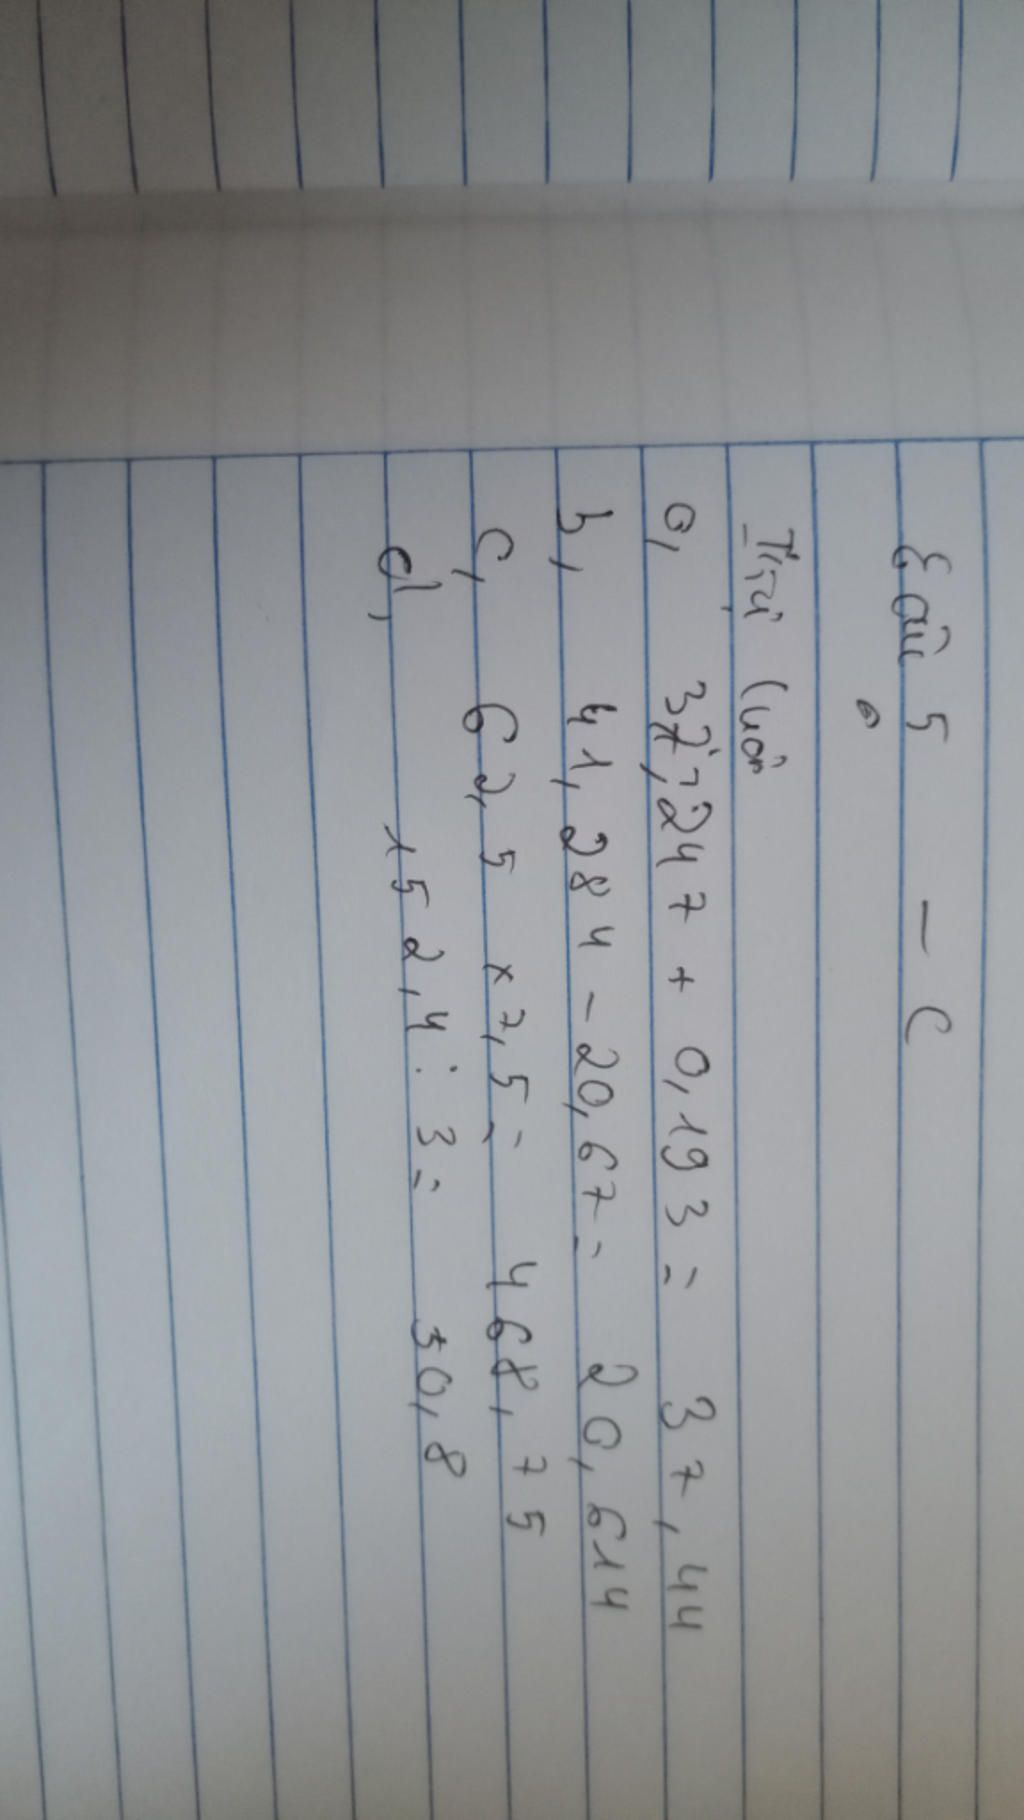 Câu 5 - C
Tự luận
a, 37,247 + 0,193 = 37,44
b, 41,284 - 20,67 = 20,614
c, 62,5 x 7,5 = 468,75
d, 152,4 : 3 = 50,8